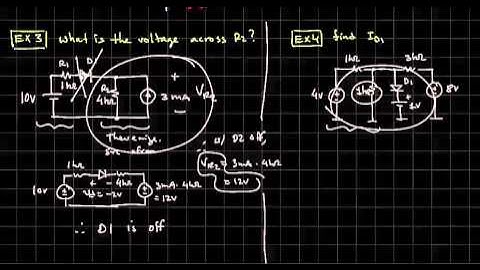 EX 3 What is the voltage across R2?
R1 D
1kΩ
10v
R2
4kΩ
3mA
+
VR2
-
Thevenize
src xfrom
1kΩ
10v
+ - 4kΩ
VD = -2v
3mA · 4kΩ
= 12v
∴ D1 is off
∴ w/ D2 off,
VR2 = 3mA · 4kΩ
= 12v
EX 4 find ID1
1kΩ 3kΩ
4v
1kΩ
D1
1v
8v